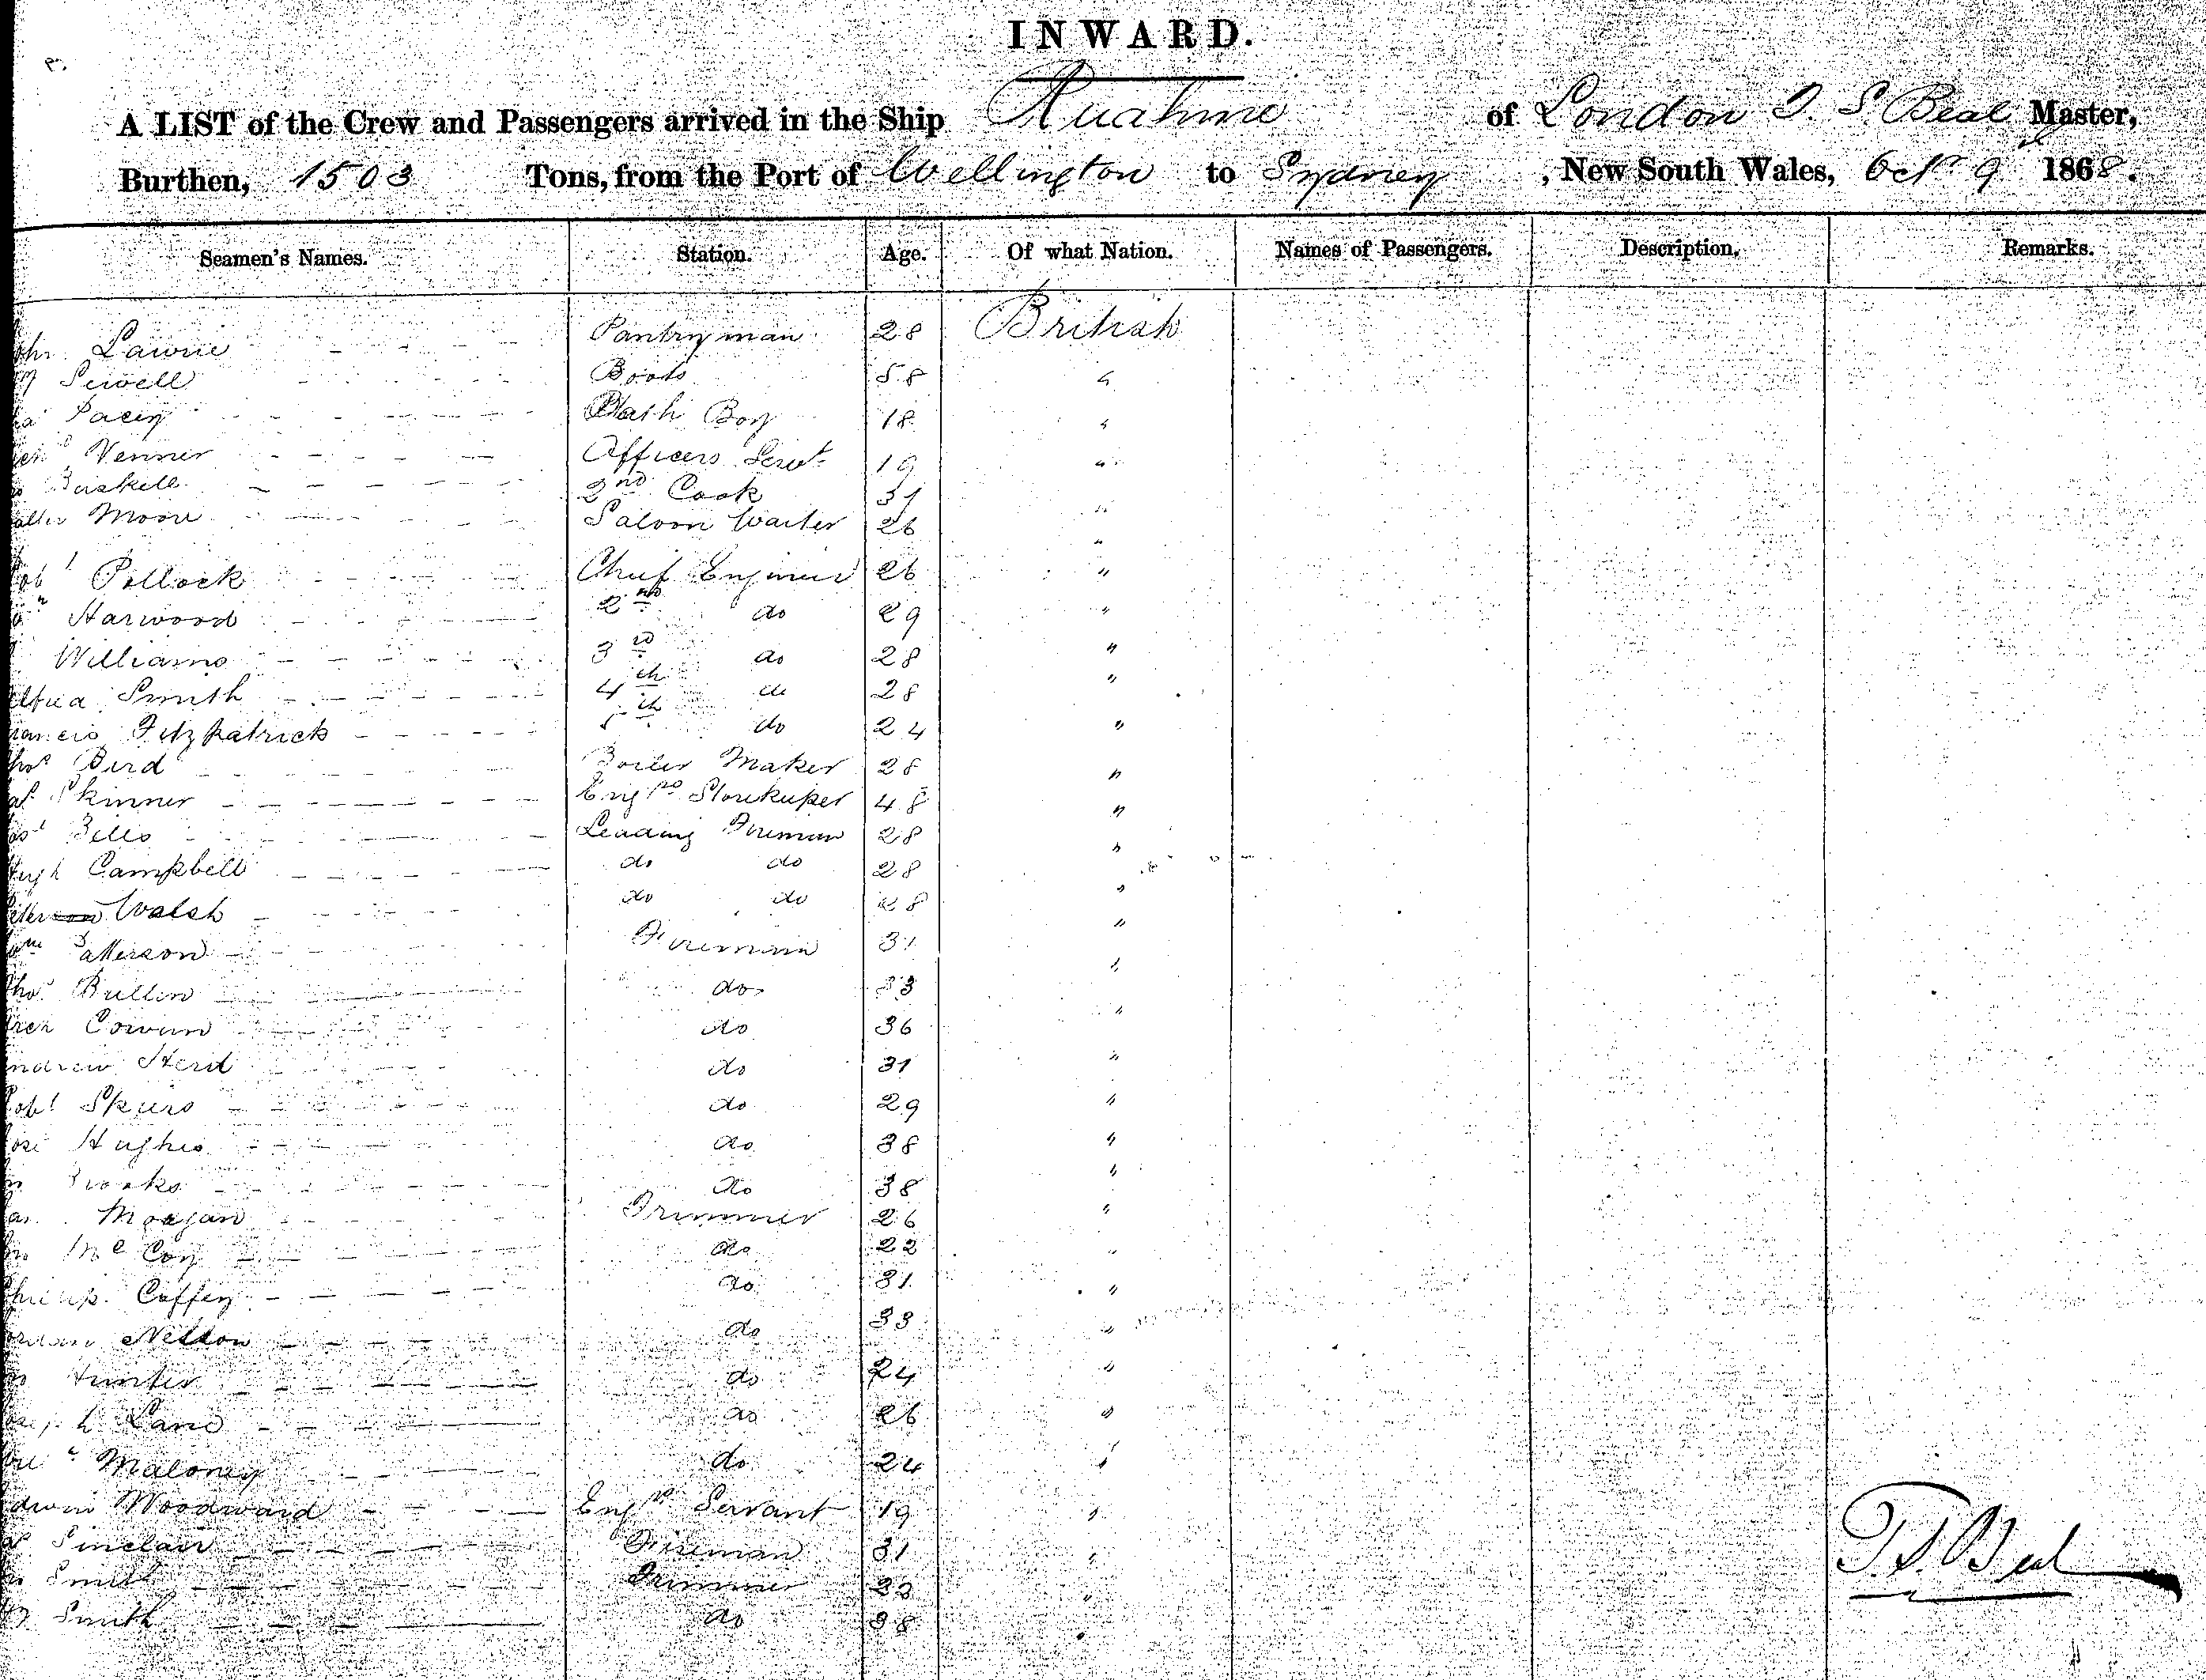 INWARD.
A LIST of the Crew and Passengers arrived in the Ship Ruahine of London T. S. Beal Master,
Burthen, 1503 Tons, from the Port of Wellington to Sydney, New South Wales, Octr 9 1868.
Seamen's Names. Station. Age. Of what Nation. Names of Passengers. Description. Remarks.
Lawrie Pantryman 28 British
Sewell Boots 58 "
Pacey Boy 18 "
Venner Officers Servt 19 "
2nd Cook 31 "
Moore Saloon Waiter 26 "
Pollock Chief Engineer 26 "
Harwood 2nd do 29 "
Williams 3rd do 28 "
Smith 4th do 28 "
Fitzpatrick 5th do 24 "
Bird Boiler Maker 28 "
Skinner Engrs Storekeeper 48 "
Bills Leading Fireman 28 "
Hugh Campbell do do 28 "
Walsh do do 28 "
Patterson Fireman 31 "
Bullen do 33 "
Cowan do 36 "
Herd do 31 "
do 29 "
Hughes do 38 "
Brooks do 38 "
Morgan Trimmer 26 "
McCoy do 22 "
Coffey do 31 "
do 33 "
Hunter do 24 "
Lane do 26 "
Maloney do 24 "
Woodward Engrs Servant 19 "
Sinclair Fireman 31 "
Smith Trimmer "
Smith do 38 "
T. S. Beal